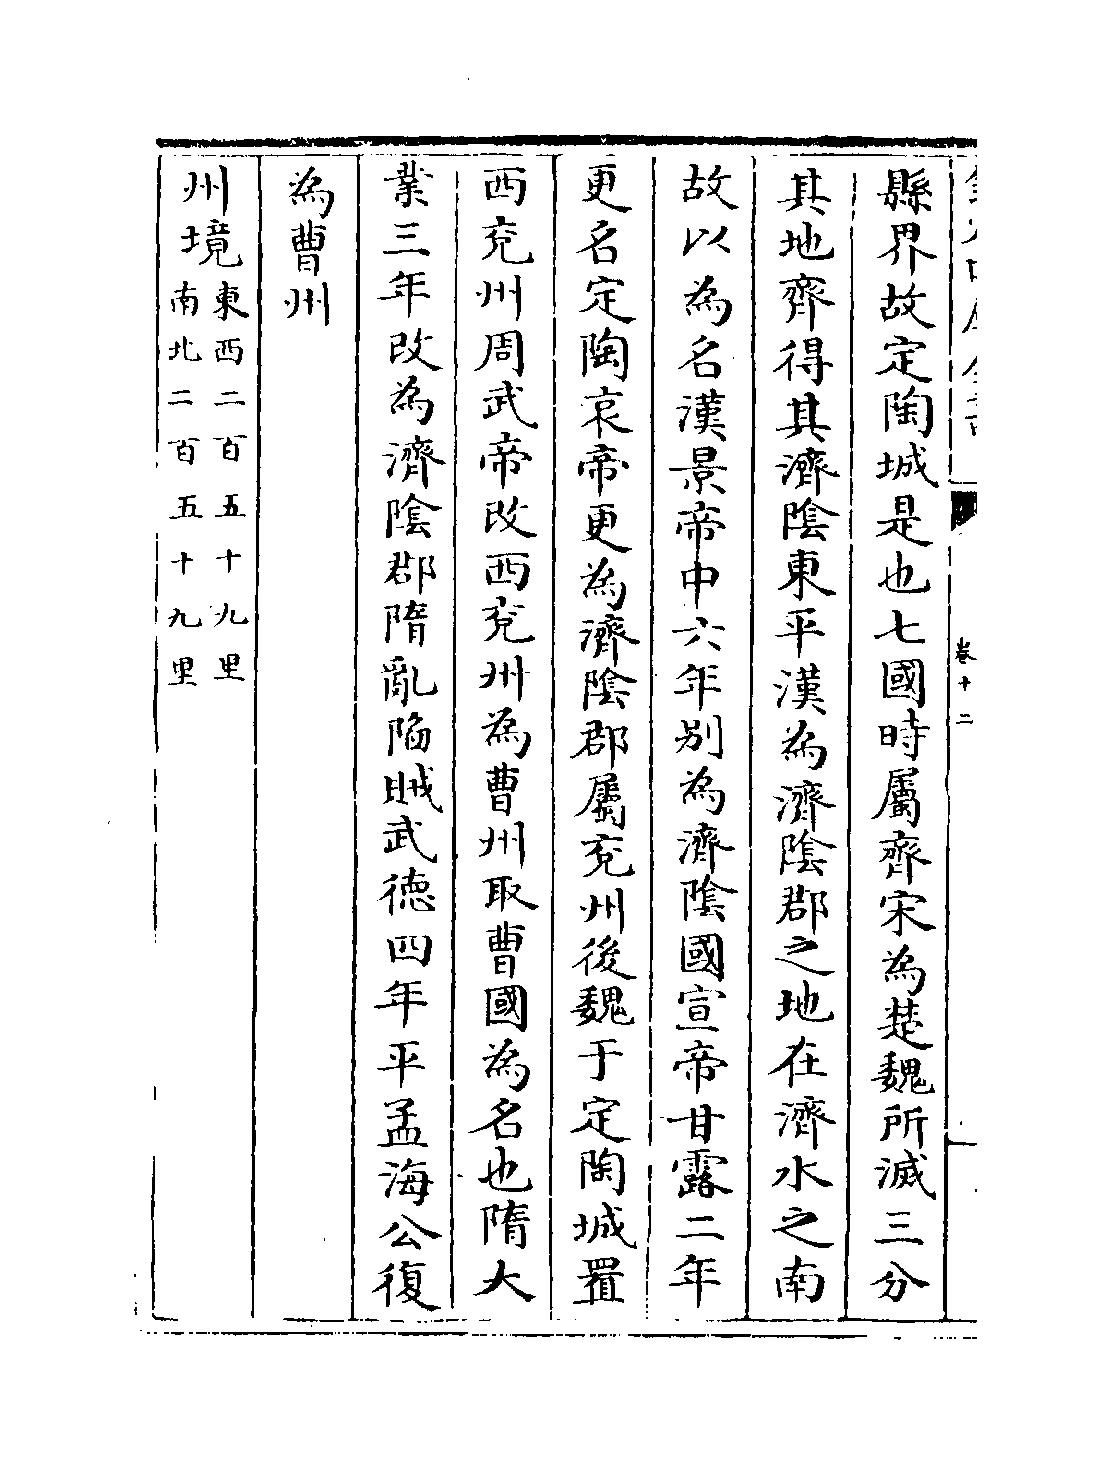 縣界故定陶城是也七國時屬齊宋為楚魏所滅三分
其地齊得其濟陰東平漢為濟陰郡之地在濟水之南
故以為名漢景帝中六年别為濟陰國宣帝甘露二年
更名定陶哀帝更為濟陰郡屬兖州後魏于定陶城置
西兖州周武帝改西兖州為曹州取曹國為名也隋大
業三年改為濟陰郡隋亂陷賊武徳四年平孟海公復
為曹州
州境東西二百五十九里
南北二百五十九里
卷十二